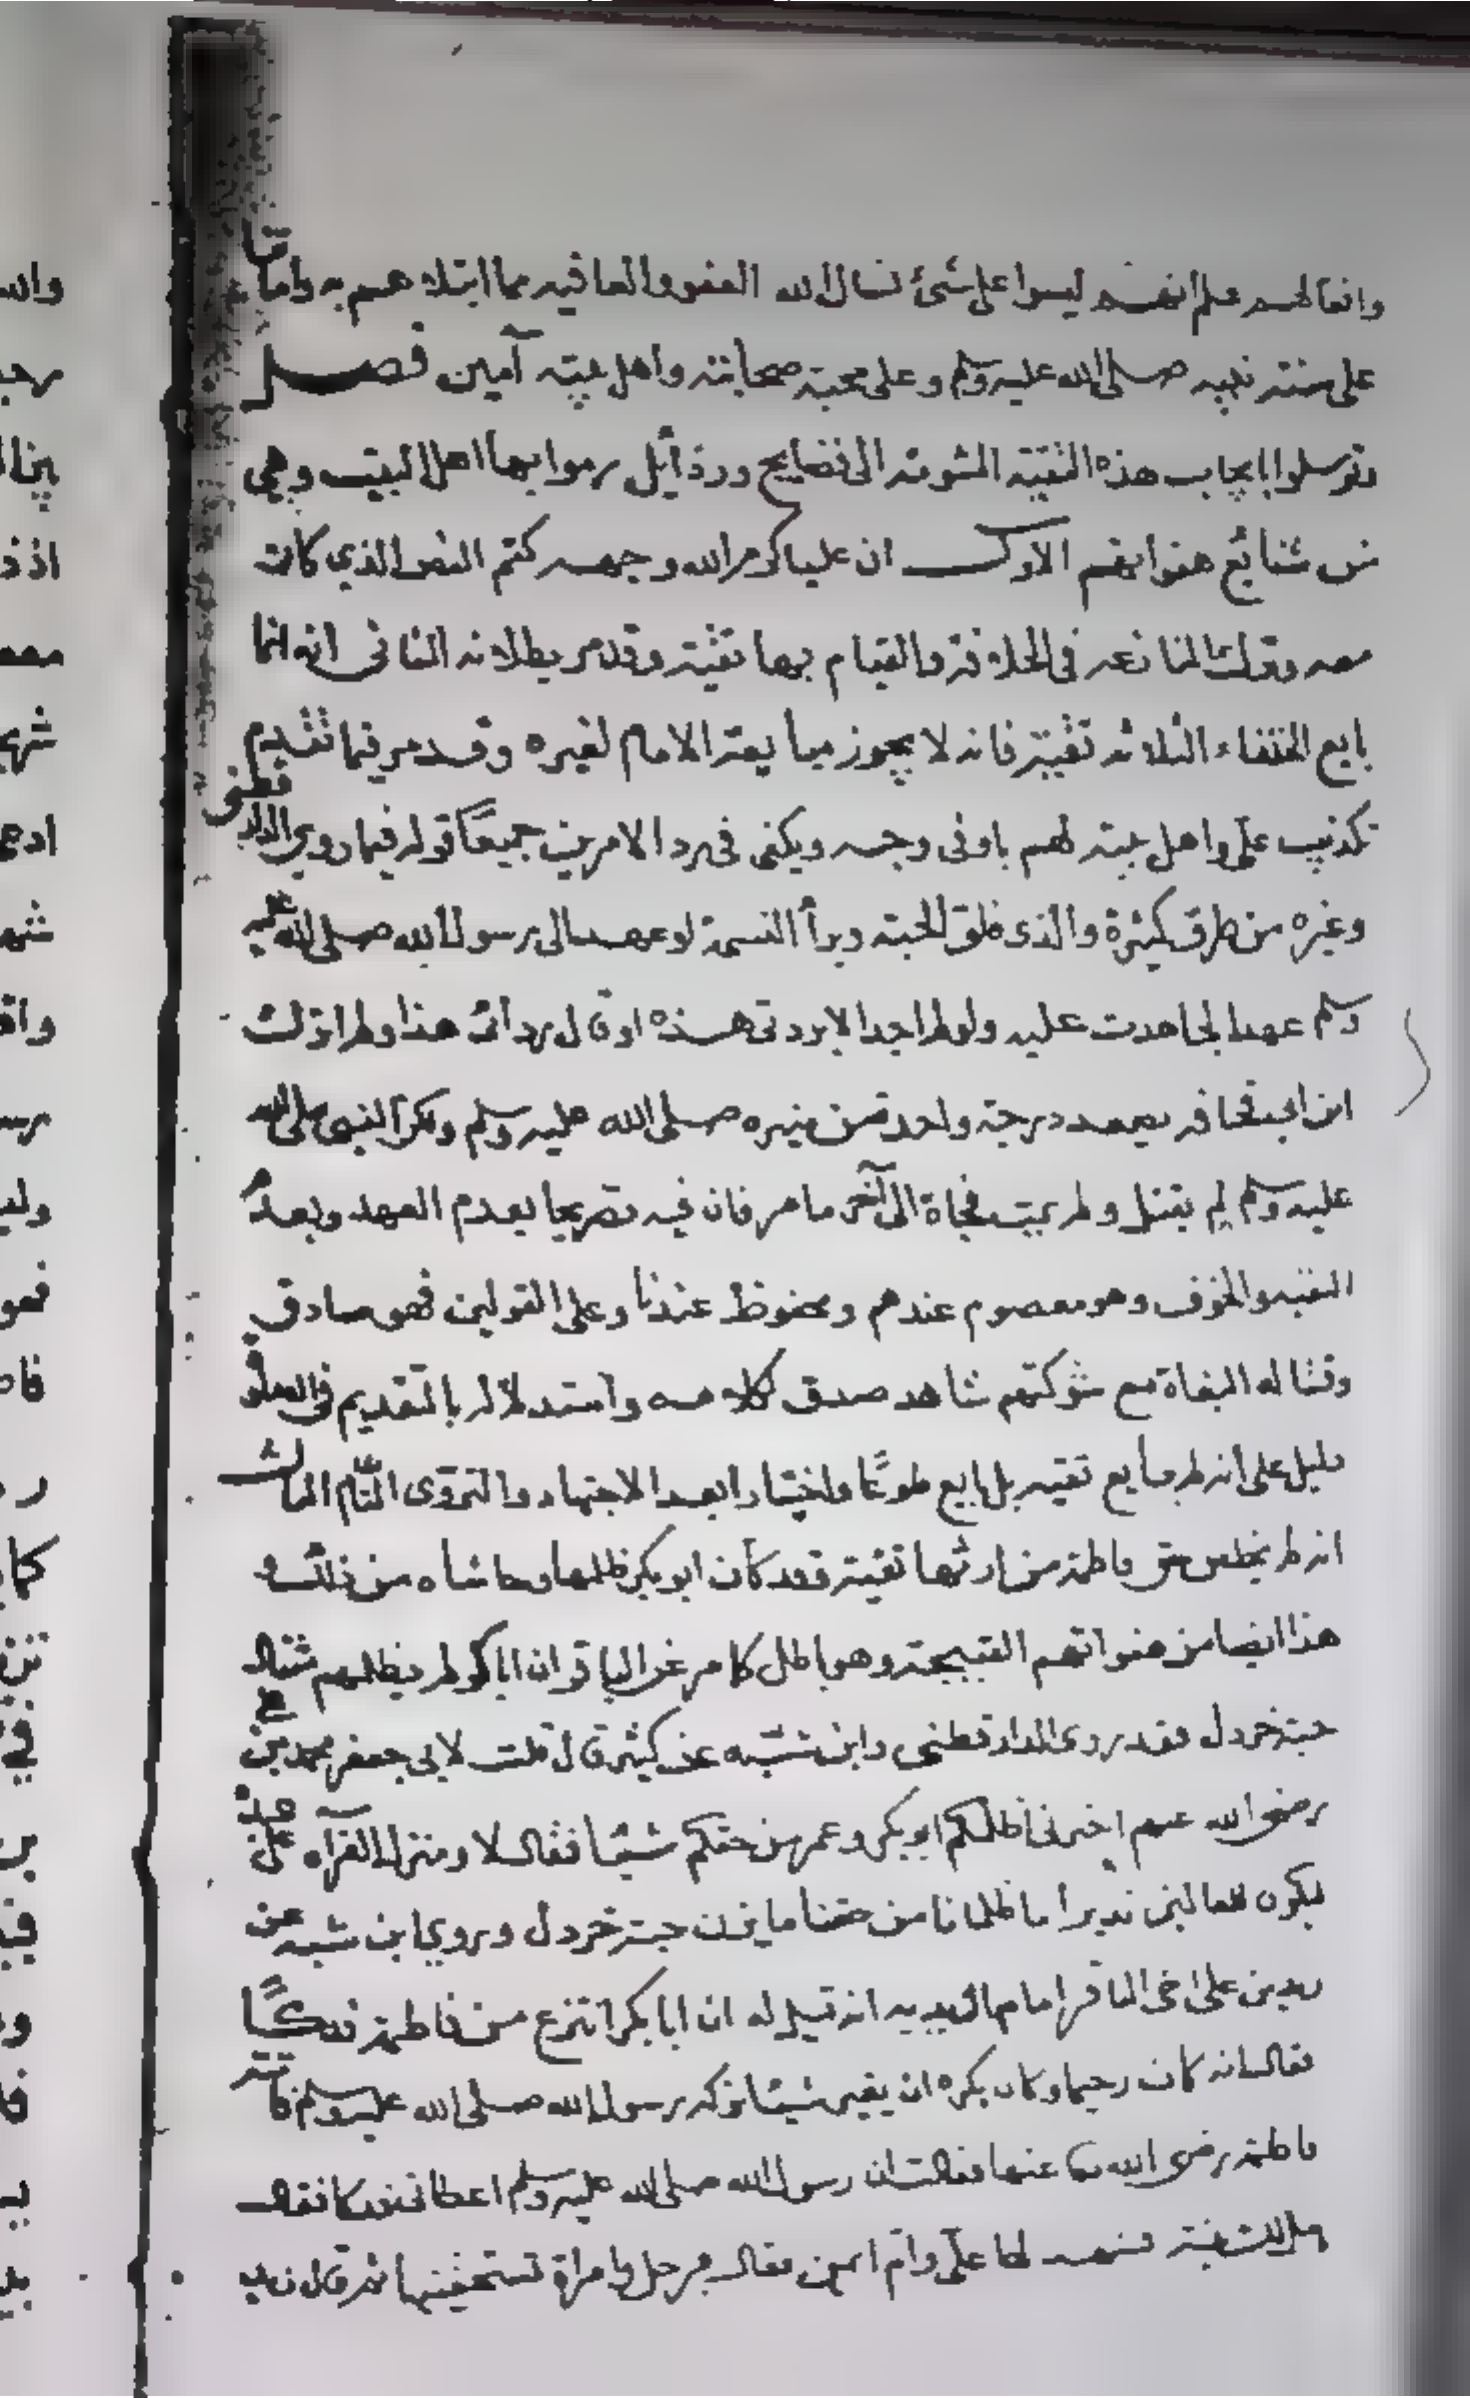 وافعالهم علم انهم ليسوا على شئ نسال الله العفو والعافيه مما ابتلاهم به واماتنا
على سنته نبيه صلى الله عليه وسلم وعلى محبة صحابته واهل بيته آمين فصل
وتوسلوا بايجاب هذه التقية المشومة الى فضايح ورذآئل رموا بها اهل البيت وهي
من شنائع هفواتهم الاول ان عليا كرم الله وجهه كتم النص الذي كان
معه وترك المنازعه في الخلافة والقيام بها تقية وقد مر بطلانه الثاني انه انما
بايع الخلفاء الثلاثه تقية فانه لا يجوز مبايعة الامام لغيره وقد مر فيما تقدم
تكذيب علي واهل بيته لهم باوفى وجه ويكفى في رد الامرين جميعًا قوله فيما روى الدارقطني
وغيره من طرق كثيرة والذي فلق الحبة وبرأ النسمة لو عهد الى رسول الله صلى الله عليه
وسلم عهدا لجاهدت عليه ولو لم اجد الا بردتى هذه او قال ردائى هذا ولم اترك
ابن ابي قحافه يصعد درجة واحدة من منبره صلى الله عليه وسلم ولكن النبي صلى الله
عليه وسلم لم يقتل ولم يمت فجاة الى آخر ما مر فان فيه تصريحا بعدم العهد وبعدم
التقية والخوف وهو معصوم عندهم ومحفوظ عندنا وعلى القولين فهو صادق
وقتاله البغاة مع شوكتهم شاهد صدق كلامه واستدلاله بالتقديم في الصلوة
دليل على انه لم يبايع تقية بل بايع طوعًا واختيارا بعد الاجتهاد والتروى التام الثالث
انه لم يخلص حق فاطمة من ارثها تقية فقد كان ابو بكر ظلمها وحاشاه من ذلك و
هذا ايضا من هفواتهم القبيحة وهو باطل كما مر عن الباقر ان ابا بكر لم يظلمهم مثقال
حبة خردل فقد روى الدارقطني وابن شبّه عن كثير قال قلت لابي جعفر محمد بن علي
رضى الله عنهم اخبرني اظلمكم ابو بكر وعمر من حقكم شيئا فقال لا ومنزل القرآن على عبده
ليكون للعالمين نذيرا ما ظلمانا من حقنا ما يزن حبة خردل وروي ابن شبه عن
زيد بن علي اخى الباقر امام الزيديه انه قيل له ان ابا بكر انتزع من فاطمة فدكًا
فقال انه كان رحيما وكان يكره ان يغير شيئا تركه رسول الله صلى الله عليه وسلم فاتته
فاطمة رضى الله تعا عنها فقالت ان رسول الله صلى الله عليه وسلم اعطاني فدكا فقال
هل لك بينة فشهد لها علي وام ايمن فقال فبرجل وامراة تستحقينها ثم قال زيد